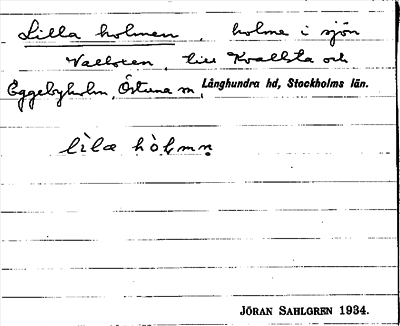 Lilla holmen, holme i sjön
Valloxen, till Kvallsta och
Eggebyholm, Östuna sn, Långhundra hd, Stockholms län.
lìla hòḷmn̥
JÖRAN SAHLGREN 1934.